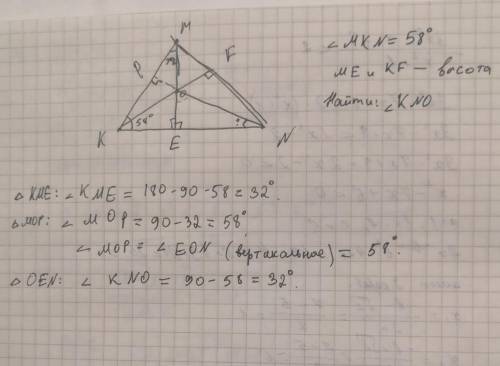 M
F
P
32°
O
58°
?
K
E
N
∠MKN = 58°
ME и KF – высота
Найти: ∠KNO
△KME: ∠KME = 180-90-58 = 32°.
△MOP: ∠MOP = 90-32 = 58°
∠MOP = ∠EON (вертикальное) = 58°.
△OEN: ∠KNO = 90-58 = 32°.